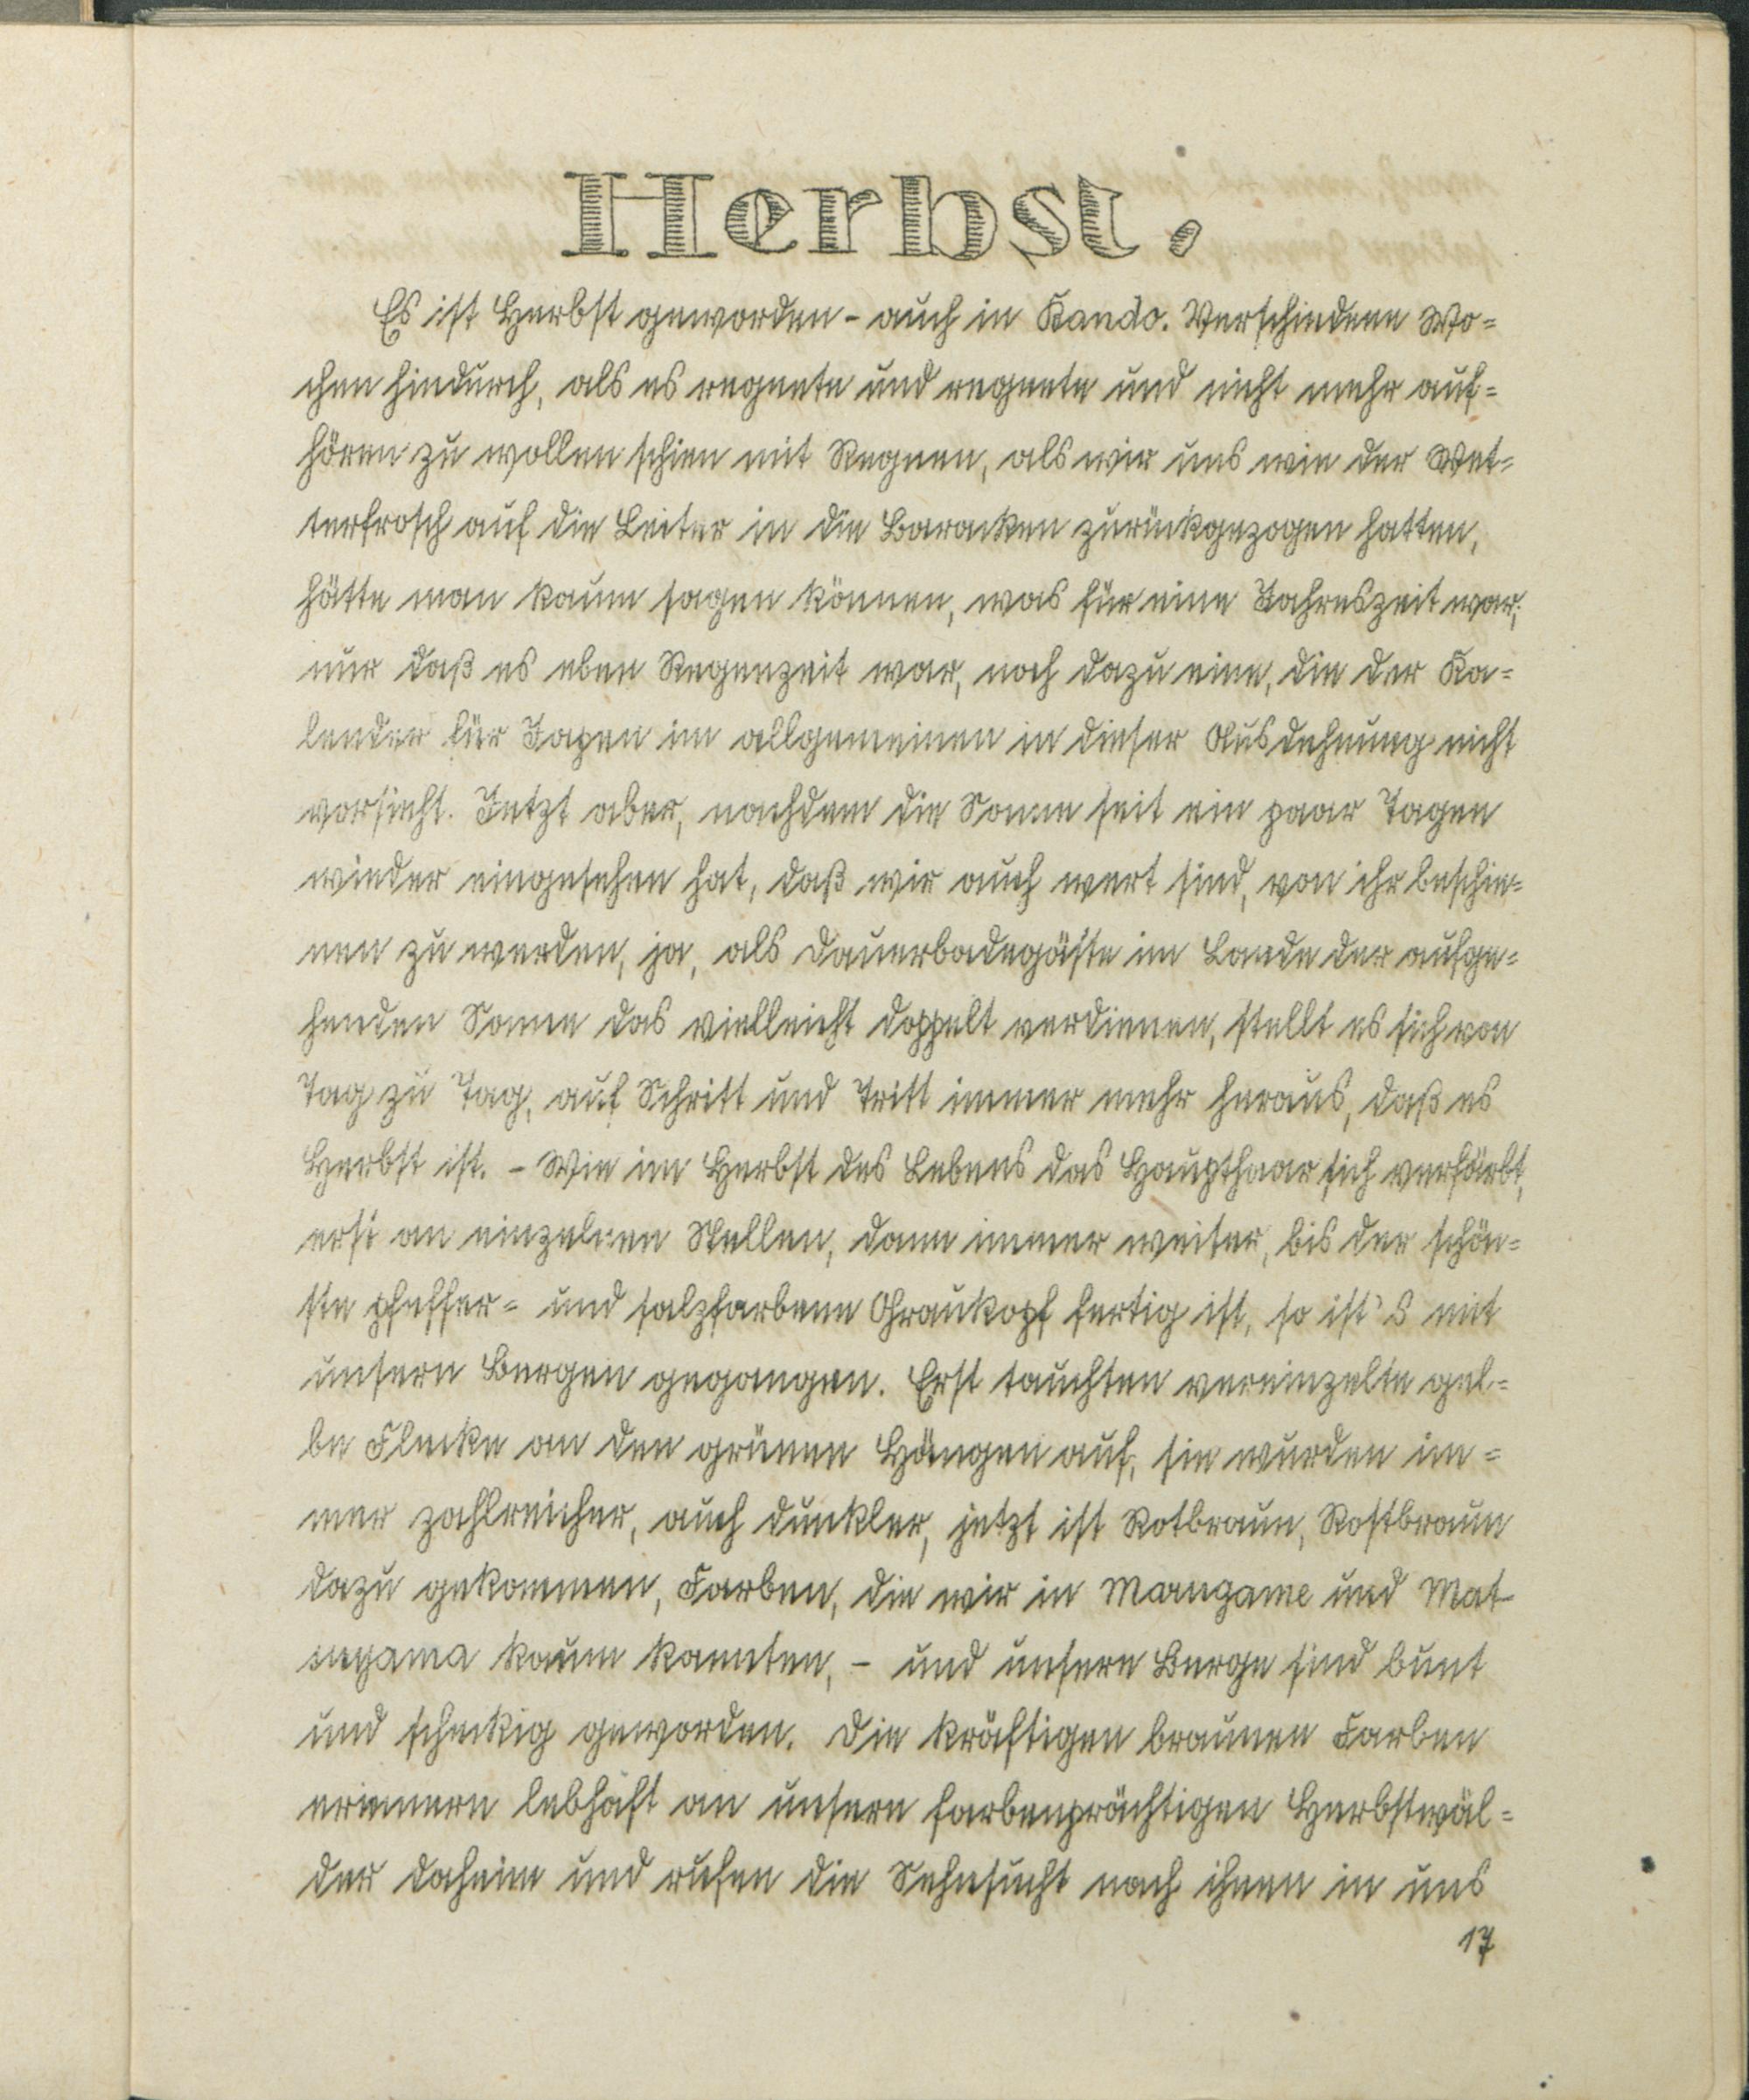 Herbst.
Es ist Herbst geworden - auch in Bando. Verschiedene Wo=
chen hindurch, als es regnete und regnete und nicht mehr auf=
hören zu wollen schien mit Regnen, als wir uns wie der Wet=
terfrosch auf die Leiter in die Baracken zurückgezogen hatten,
hätte man kaum sagen können, was für eine Jahreszeit war,
nur daß es eben Regenzeit war, noch dazu eine, die der Ka=
lender für Japan im allgemeinen in dieser Ausdehnung nicht
vorsieht. Jetzt aber, nachdem die Sonne seit ein paar Tagen
wieder eingesehen hat, daß wir auch wert sind, von ihr beschie=
nen zu werden, ja, als Dauerbadegäste im Lande der aufge=
henden Sonne das vielleicht doppelt verdienen, stellt es sich von
Tag zu Tag, auf Schritt und Tritt immer mehr heraus, daß es
Herbst ist. - Wie im Herbst des Lebens das Haupthaar sich verfärbt,
erst an einzelnen Stellen, dann immer weiter, bis der schön=
ste pfeffer= und salzfarbene Graukopf fertig ist, so ist's mit
unsern Bergen gegangen. Erst tauchten vereinzelte gel=
be Flecke an den grünen Hängen auf, sie wurden im=
mer zahlreicher, auch dunkler, jetzt ist Rotbraun, Rostbraun
dazu gekommen, Farben, die wir in Marugame und Mat
suyama kaum kannten, - und unsere Berge sind bunt
und scheckig geworden. Die kräftigen braunen Farben
erinnern lebhaft an unsere farbenprächtigen Herbstwäl=
der daheim und rufen die Sehnsucht nach ihnen in uns
17